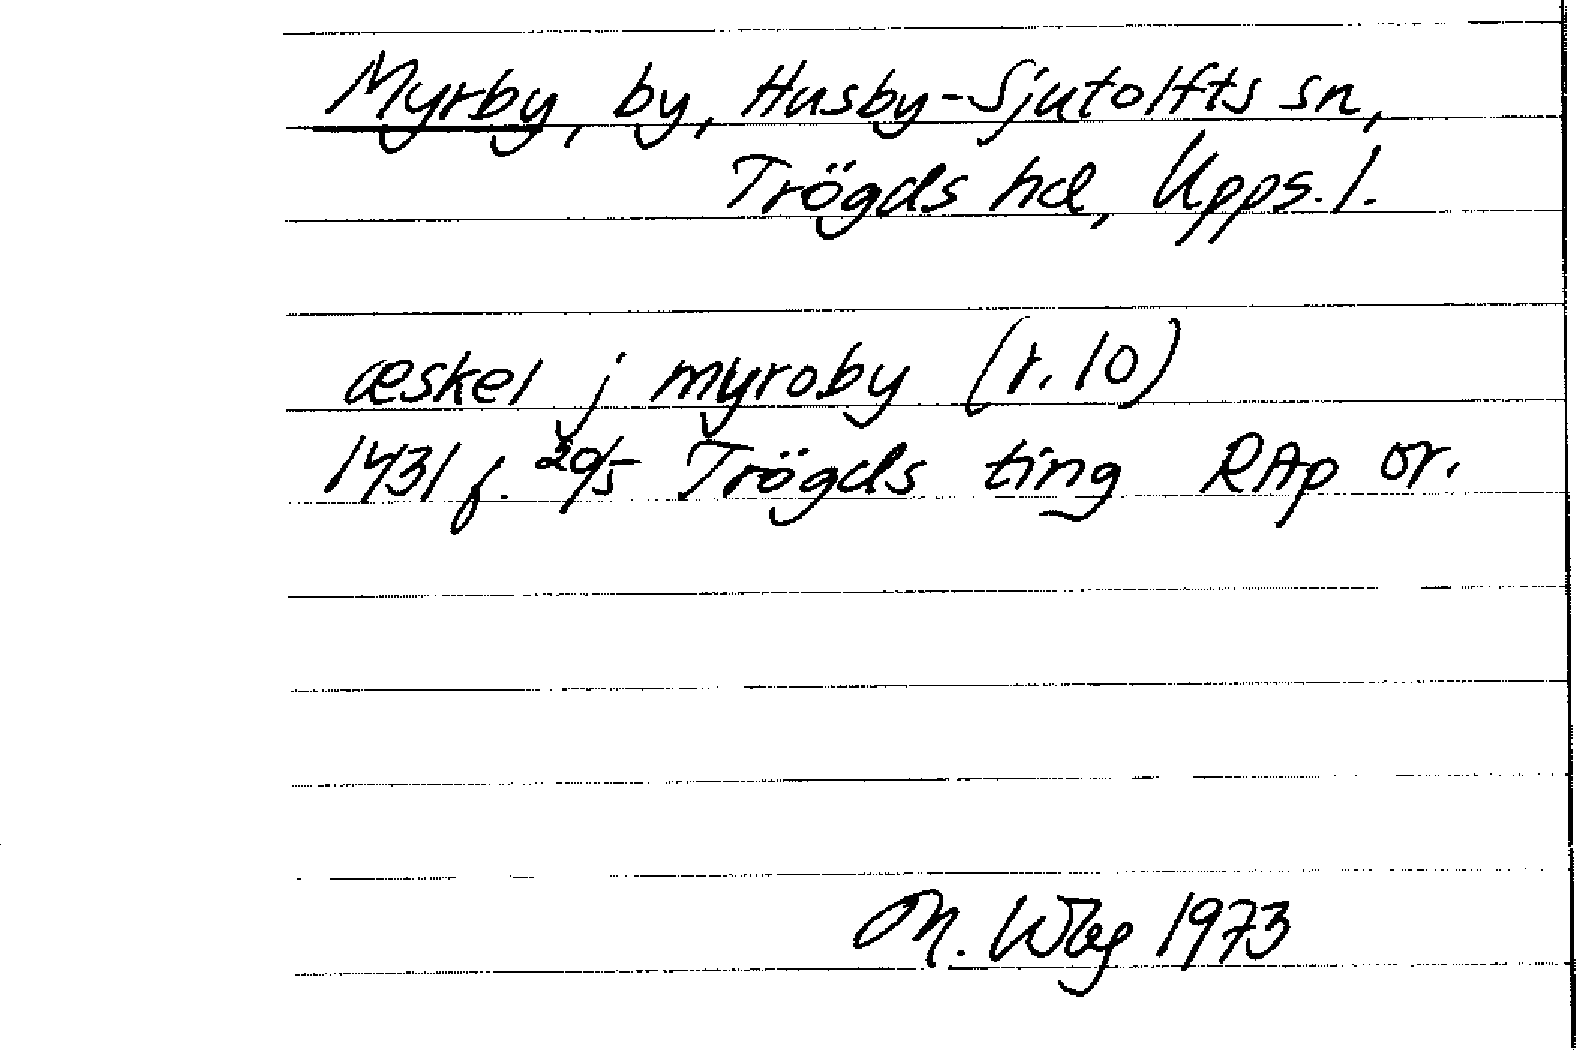 Myrby, by, Husby-Sjutolfts sn,
Trögds hd, Upps. l.
æskel j myroby (r. 10)
1431 f. 20/5 Trögds ting RAp or.
M. Wbg 1973